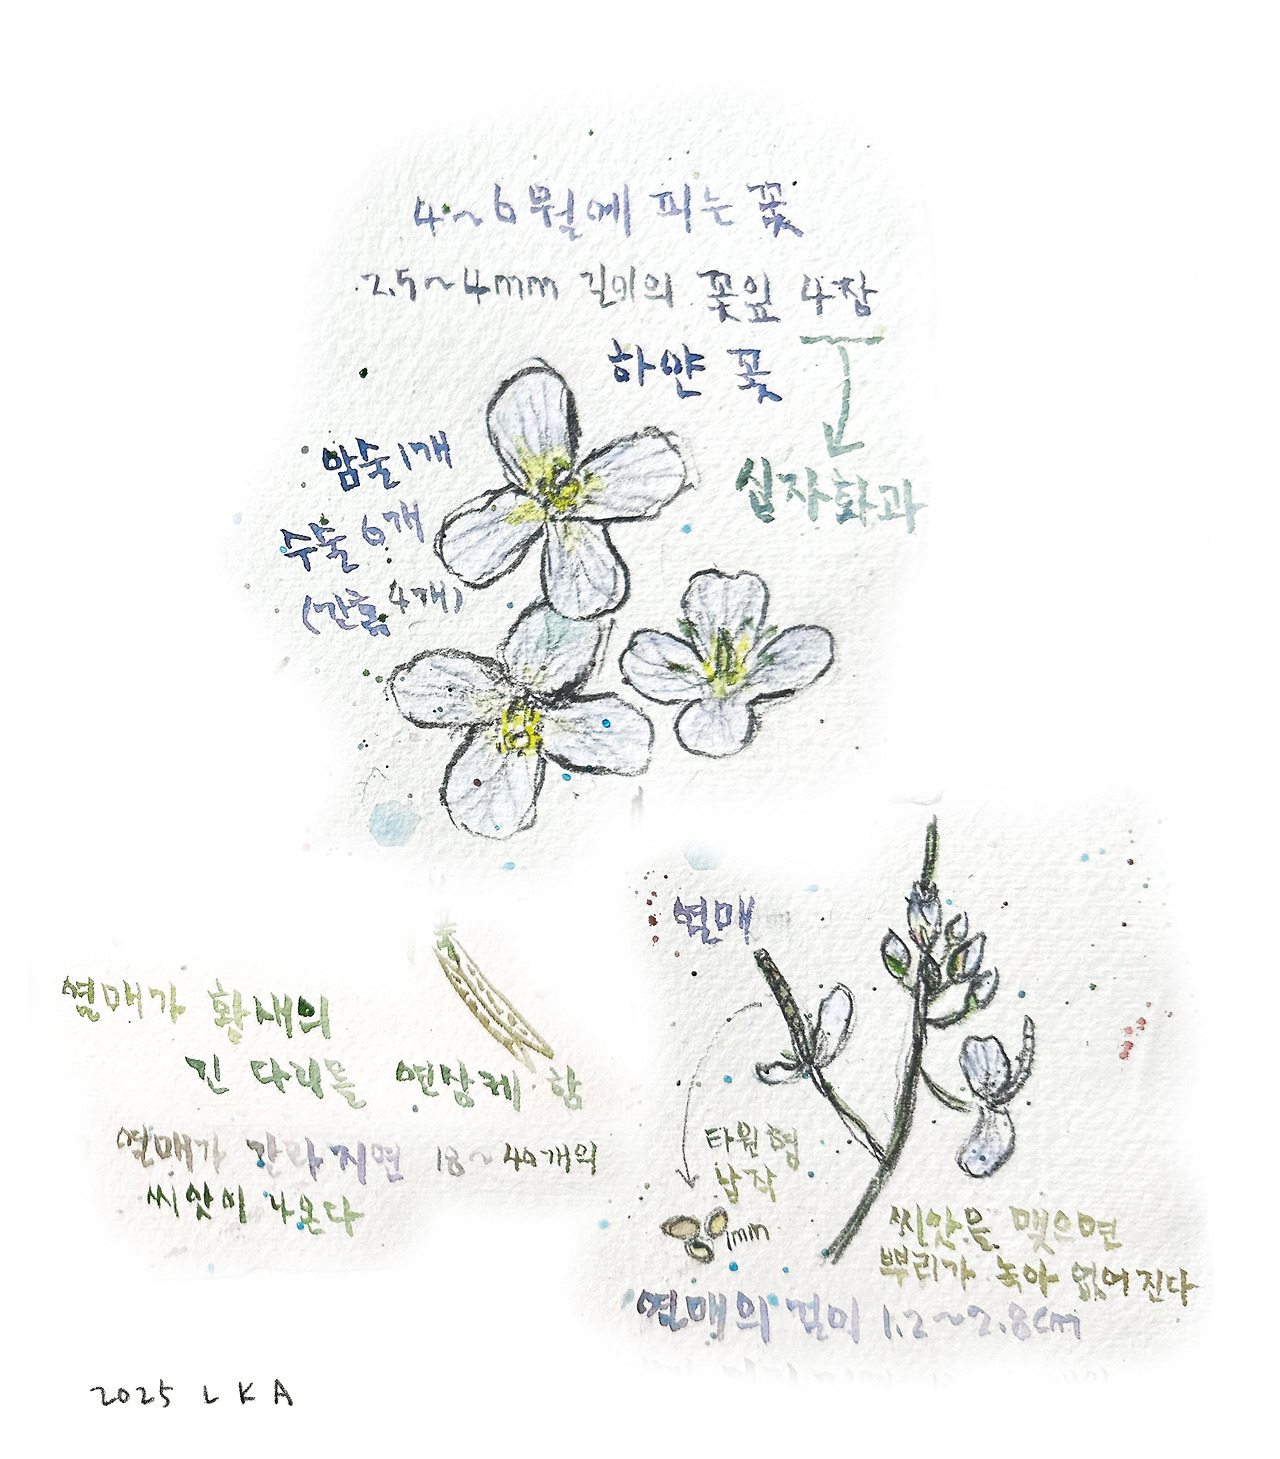 4~6월에 피는 꽃
2.5~4mm 길이의 꽃잎 4장
하얀 꽃
암술1개
수술 6개
(간혹 4개)
십자화과
열매
열매가 황새의
긴 다리를 연상케 함
열매가 갈라지면 18~40개의
씨앗이 나온다
타원형
납작
1mm
씨앗을 맺으면
뿌리가 녹아 없어진다
열매의 길이 1.2~2.8cm
2025 L K A